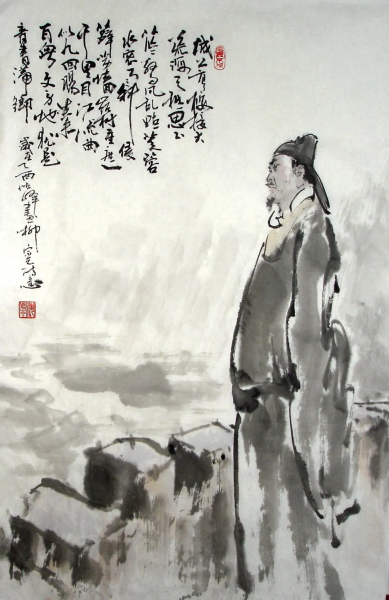 城上高樓接大
荒海天愁思正
茫茫驚風亂颭芙蓉
水密雨斜侵
薜荔墻嶺樹重遮
千里目江流曲
似九回腸共來
百粤文身地猶是
音書滯鄉 歲在乙酉 峰畫柳
宗元詩意